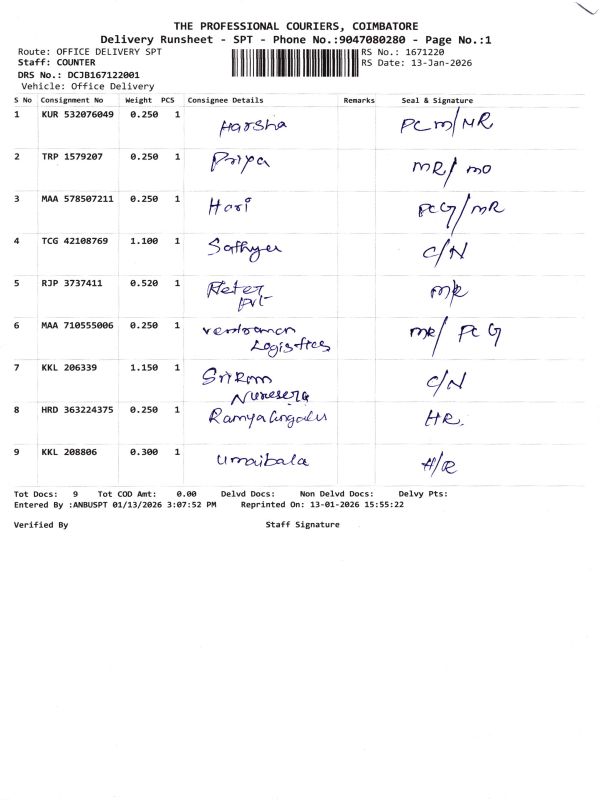 THE PROFESSIONAL COURIERS, COIMBATORE
Delivery Runsheet - SPT - Phone No.:9047080280 - Page No.:1
Route: OFFICE DELIVERY SPT RS No.: 1671220
Staff: COUNTER RS Date: 13-Jan-2026
DRS No.: DCJB167122001
Vehicle: Office Delivery
S No Consignment No Weight PCS Consignee Details Remarks Seal & Signature
1 KUR 532076049 0.250 1 Harsha PCM/HR
2 TRP 1579207 0.250 1 Priya MR/ mo
3 MAA 578507211 0.250 1 Hari PCG/MR
4 TCG 42108769 1.100 1 Sathya C/N
5 RJP 3737411 0.520 1 MR
pvt
6 MAA 710555006 0.250 1 MR/ PCG
Logistics
7 KKL 206339 1.150 1 C/N
8 HRD 363224375 0.250 1 HR.
9 KKL 208806 0.300 1 Umaibala H/R
Tot Docs: 9 Tot COD Amt: 0.00 Delvd Docs: Non Delvd Docs: Delvy Pts:
Entered By :ANBUSPT 01/13/2026 3:07:52 PM Reprinted On: 13-01-2026 15:55:22
Verified By Staff Signature